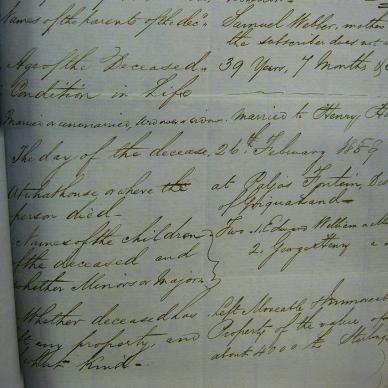 Names of the parents of the dec.d Samuel Webber, mother
the subscriber does not
Age of the Deceased. 39 Years, 7 Months &
Condition in Life
Married or unmarried, Widower or widow. married to Henry
The day of the decease, 26th February 1856
At what house, or where the at Paljas Fontein,
person died - of Gonqualand -
Names of the children Two. 1. Edward William a
of the deceased and 2. George Henry a
whether Minors or Majors
Whether deceased has Left Moveable & Immoveable
left any property and Property of the value, of
what kind - about 4000 £ Sterling